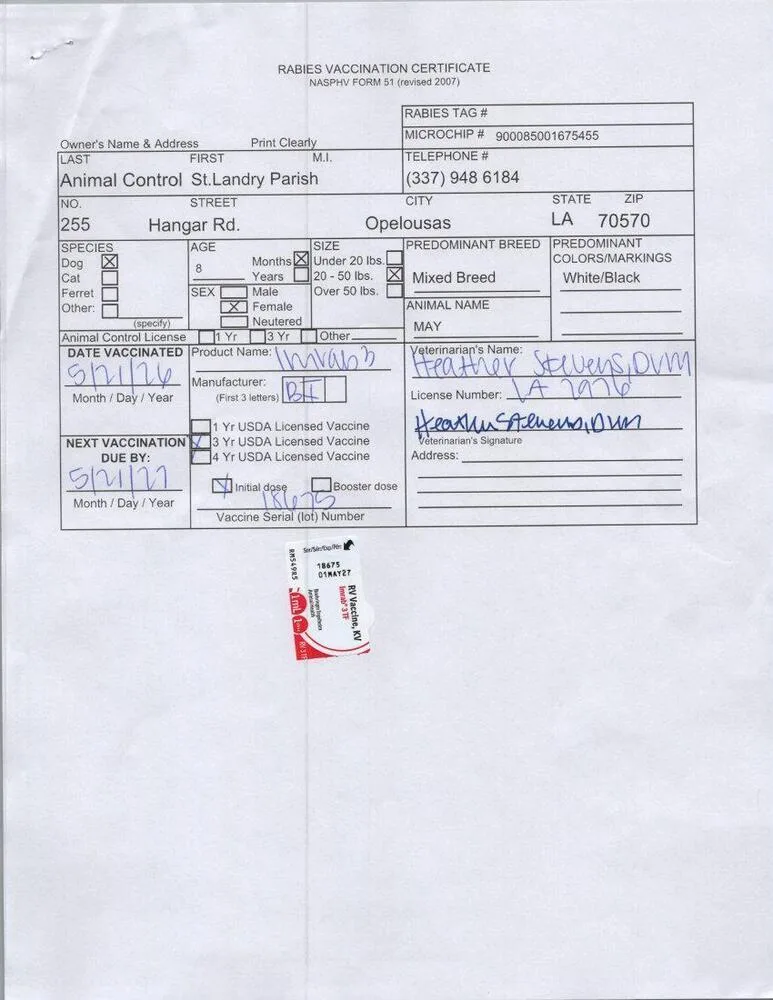 RABIES VACCINATION CERTIFICATE
NASPHV FORM 51 (revised 2007)
RABIES TAG #
MICROCHIP # 900085001675455
Owner's Name & Address Print Clearly
LAST FIRST M.I. TELEPHONE #
Animal Control St.Landry Parish (337) 948 6184
NO. STREET CITY STATE ZIP
255 Hangar Rd. Opelousas LA 70570
SPECIES AGE SIZE PREDOMINANT BREED PREDOMINANT COLORS/MARKINGS
Dog X 8 Months X Under 20 lbs.
Cat Years 20 - 50 lbs. X Mixed Breed White/Black
Ferret SEX Male Over 50 lbs.
Other: X Female ANIMAL NAME
(specify) Neutered MAY
Animal Control License 1 Yr 3 Yr Other
DATE VACCINATED Product Name: Imrab 3 Veterinarian's Name:
5/21/26 Heather Stevens, DVM
Month / Day / Year Manufacturer: BI License Number: LA 2976
(First 3 letters)
1 Yr USDA Licensed Vaccine Heather Stevens, DVM
NEXT VACCINATION 3 Yr USDA Licensed Vaccine Veterinarian's Signature
DUE BY: 4 Yr USDA Licensed Vaccine Address:
5/21/27 Initial dose Booster dose
Month / Day / Year 18675
Vaccine Serial (lot) Number
18675
01MAY27
RM549R5
RV Vaccine, KV
Imrab® 3 TF
Boehringer Ingelheim
Animal Health
1 mL
RV 3 TF